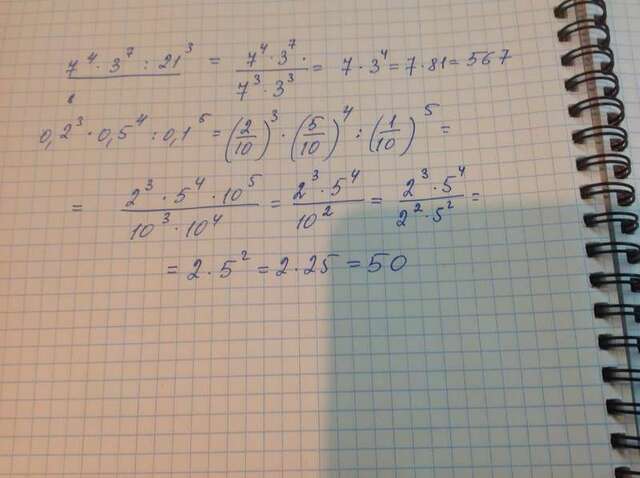 7⁴ · 3⁷ : 21³ = (7⁴ · 3⁷ ·)/(7³ · 3³) = 7 · 3⁴ = 7 · 81 = 567
0,2³ · 0,5⁴ : 0,1⁵ = (2/10)³ · (5/10)⁴ : (1/10)⁵ =
= (2³ · 5⁴ · 10⁵)/(10³ · 10⁴) = (2³ · 5⁴)/10² = (2³ · 5⁴)/(2² · 5²) =
= 2 · 5² = 2 · 25 = 50